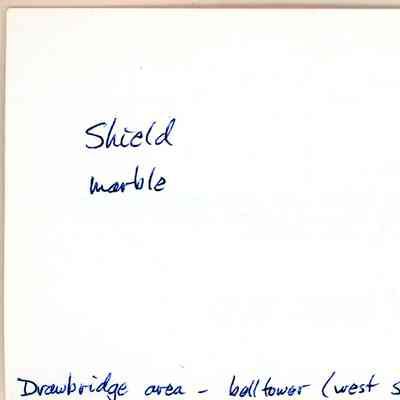 Shield
marble
Drawbridge area - belltower (west s